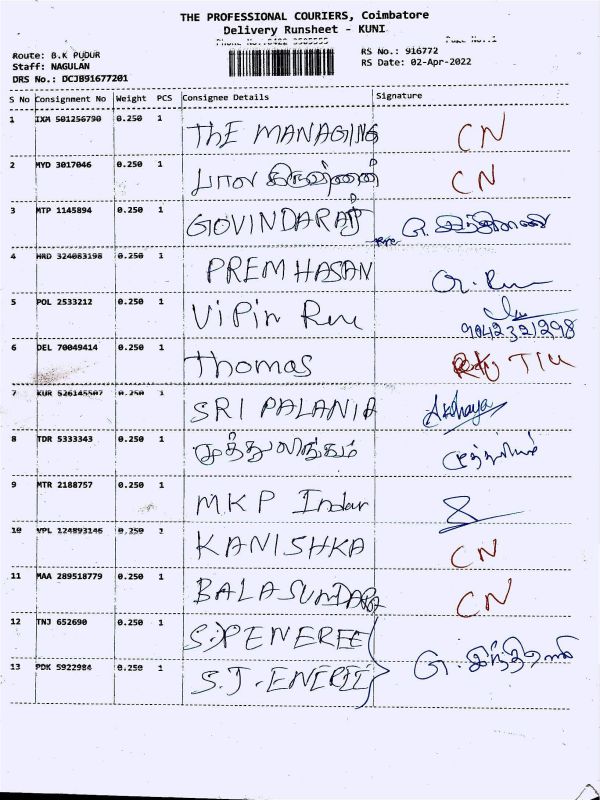 THE PROFESSIONAL COURIERS, Coimbatore
Delivery Runsheet - KUNI
Route: B.K PUDUR
RS No.: 916772
Staff: NAGULAN
RS Date: 02-Apr-2022
DRS No.: DCJB91677201
S No Consignment No Weight PCS Consignee Details Signature
1 IXM 501256790 0.250 1 ThE MANAGING CN
2 MYD 3017046 0.250 1 பால CN
3 MTP 1145894 0.250 1 GOVINDARAJ
4 HRD 324083198 0.250 1 PREM HASAN
5 POL 2533212 0.250 1 ViPin 9042321298
6 DEL 70049414 0.250 1 Thomas
7 KUR 526145507 0.250 1 SRI PALANIA Akshaya
8 TDR 5333343 0.250 1 முத்துலிங்கம்
9 MTR 2188757 0.250 1 M.K P
10 VPL 124893146 0.250 1 KANISHKA CN
11 MAA 289518779 0.250 1 BALASUNDARA CN
12 TNJ 652690 0.250 1
13 PDK 5922984 0.250 1